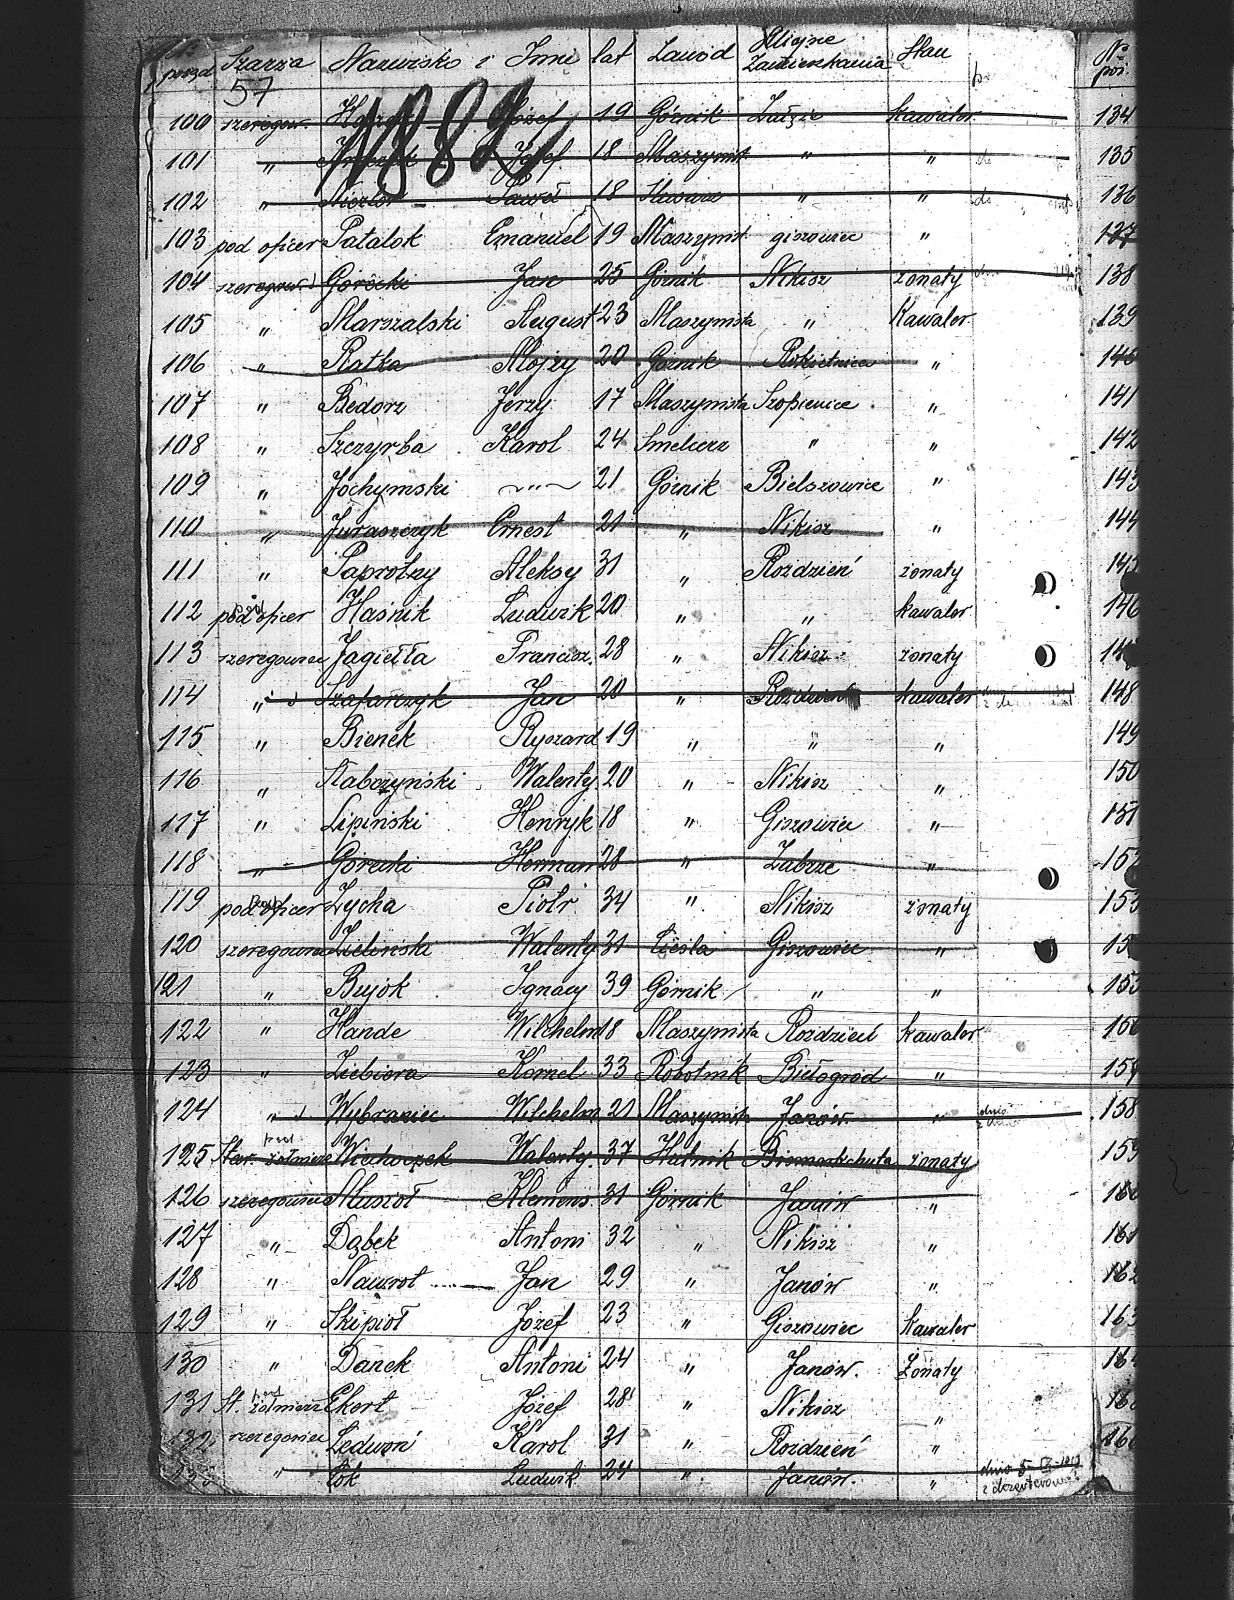 porząd Szarża Nazwisko i Imie lat Zawód Miejsce Zamieszkania Stan No poż.
57
1882
100 szeregow. Józef 19 Górnik Załęże kawaler 134
101 " Józef 18 Maszynist. " " 135
102 " Paweł 18 Ślusarz " " 136
103 pod oficer Patalok Emanuel 19 Maszynist. giszowiec " 137
104 szeregow Górecki Jan 25 Górnik Nikisz żonaty 138
105 " Marszalski August 23 Maszynista " Kawaler 139
106 " Ratka Alojzy 20 Górnik Rokietnica " 140
107 " Bedorz Jerzy 17 Maszynista Szopienice " 141
108 " Szczyrba Karol 24 Smelcerz " " 142
109 " Jochymski " 21 Górnik Bielszowice " 143
110 " Juraszczyk Ernest 21 " Nikisz " 144
111 " Paprotzy Aleksy 31 " Rozdzień żonaty 145
112 pod oficer Haśnik Ludwik 20 " " kawaler 146
113 szeregowiec Jagiełła Francisz. 28 " Nikisz żonaty 14
114 " Szafarczyk Jan 20 " Rozdzień kawaler 148
115 " Bienek Ryszard 19 " " " 149
116 " Kabczyński Walenty 20 " Nikisz " 150
117 " Lipiński Henryk 18 " Giszowiec " 151
118 " Górecki Herman 28 " Zabrze " 152
119 pod oficer Zycha Piotr 34 " Nikisz żonaty 153
120 szeregowiec Zieliński Walenty 31 Cieśla Giszowiec " 15
121 " Bujok Ignacy 39 Górnik " " 155
122 " Hande Wilchelm 18 Maszynista Rozdzień kawaler 156
123 " Ziebiera Kornel 33 Robotnik Białogrod " 157
124 " Wybraniec Wilchelm 21 Maszynista Janów " 158
125 Star. żołnierz Wieduczek Walenty 37 Hutnik Bismarkchuta żonaty 159
126 szeregowiec Musioł Klemens 31 Górnik Janów " 160
127 " Dąbek Antoni 32 " Nikisz " 161
128 " Nawrot Jan 29 " Janów " 162
129 " Skipioł Józef 23 " Giszowiec Kawaler 163
130 " Danek Antoni 24 " Janów. Żonaty 16
131 St. żołnierz Ekert Józef 28 " Nikisz " 16
132 szeregowiec Ledwoń Karol 31 " Rozdzień " 16
" Cok Ludwik 24 " Janów. "